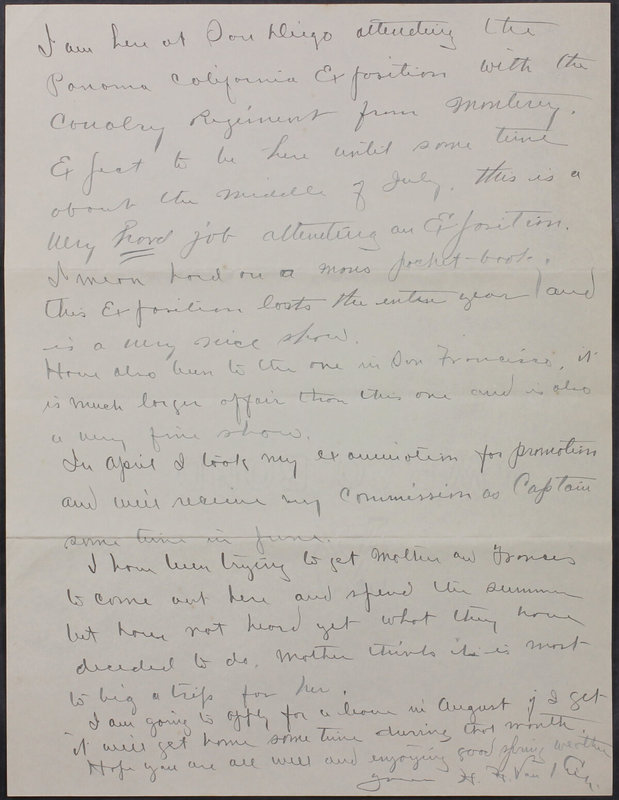 I am here at San Diego attending the
Panama California Exposition with the
Cavalry Regiment from Monterey.
Expect to be here until some time
about the middle of July. this is a
very hard job attending an Exposition.
I mean hard on a mans pocket-book.
this Exposition lasts the entire year and
is a very nice show.
Have also been to the one in San Francisco, it
is much larger affair than this one and is also
a very fine show.
In April I took my examination for promotion
and will receive my Commission as Captain
some time in June.
I have been trying to get Mother and Frances
to come out here and spend the summer
but have not heard yet what they have
decided to do. Mother thinks it is most
to big a trip for her.
I am going to apply for a leave in August if I get
it will get home some time during that month.
Hope you are all well and enjoying good spring weather
H. H. Van